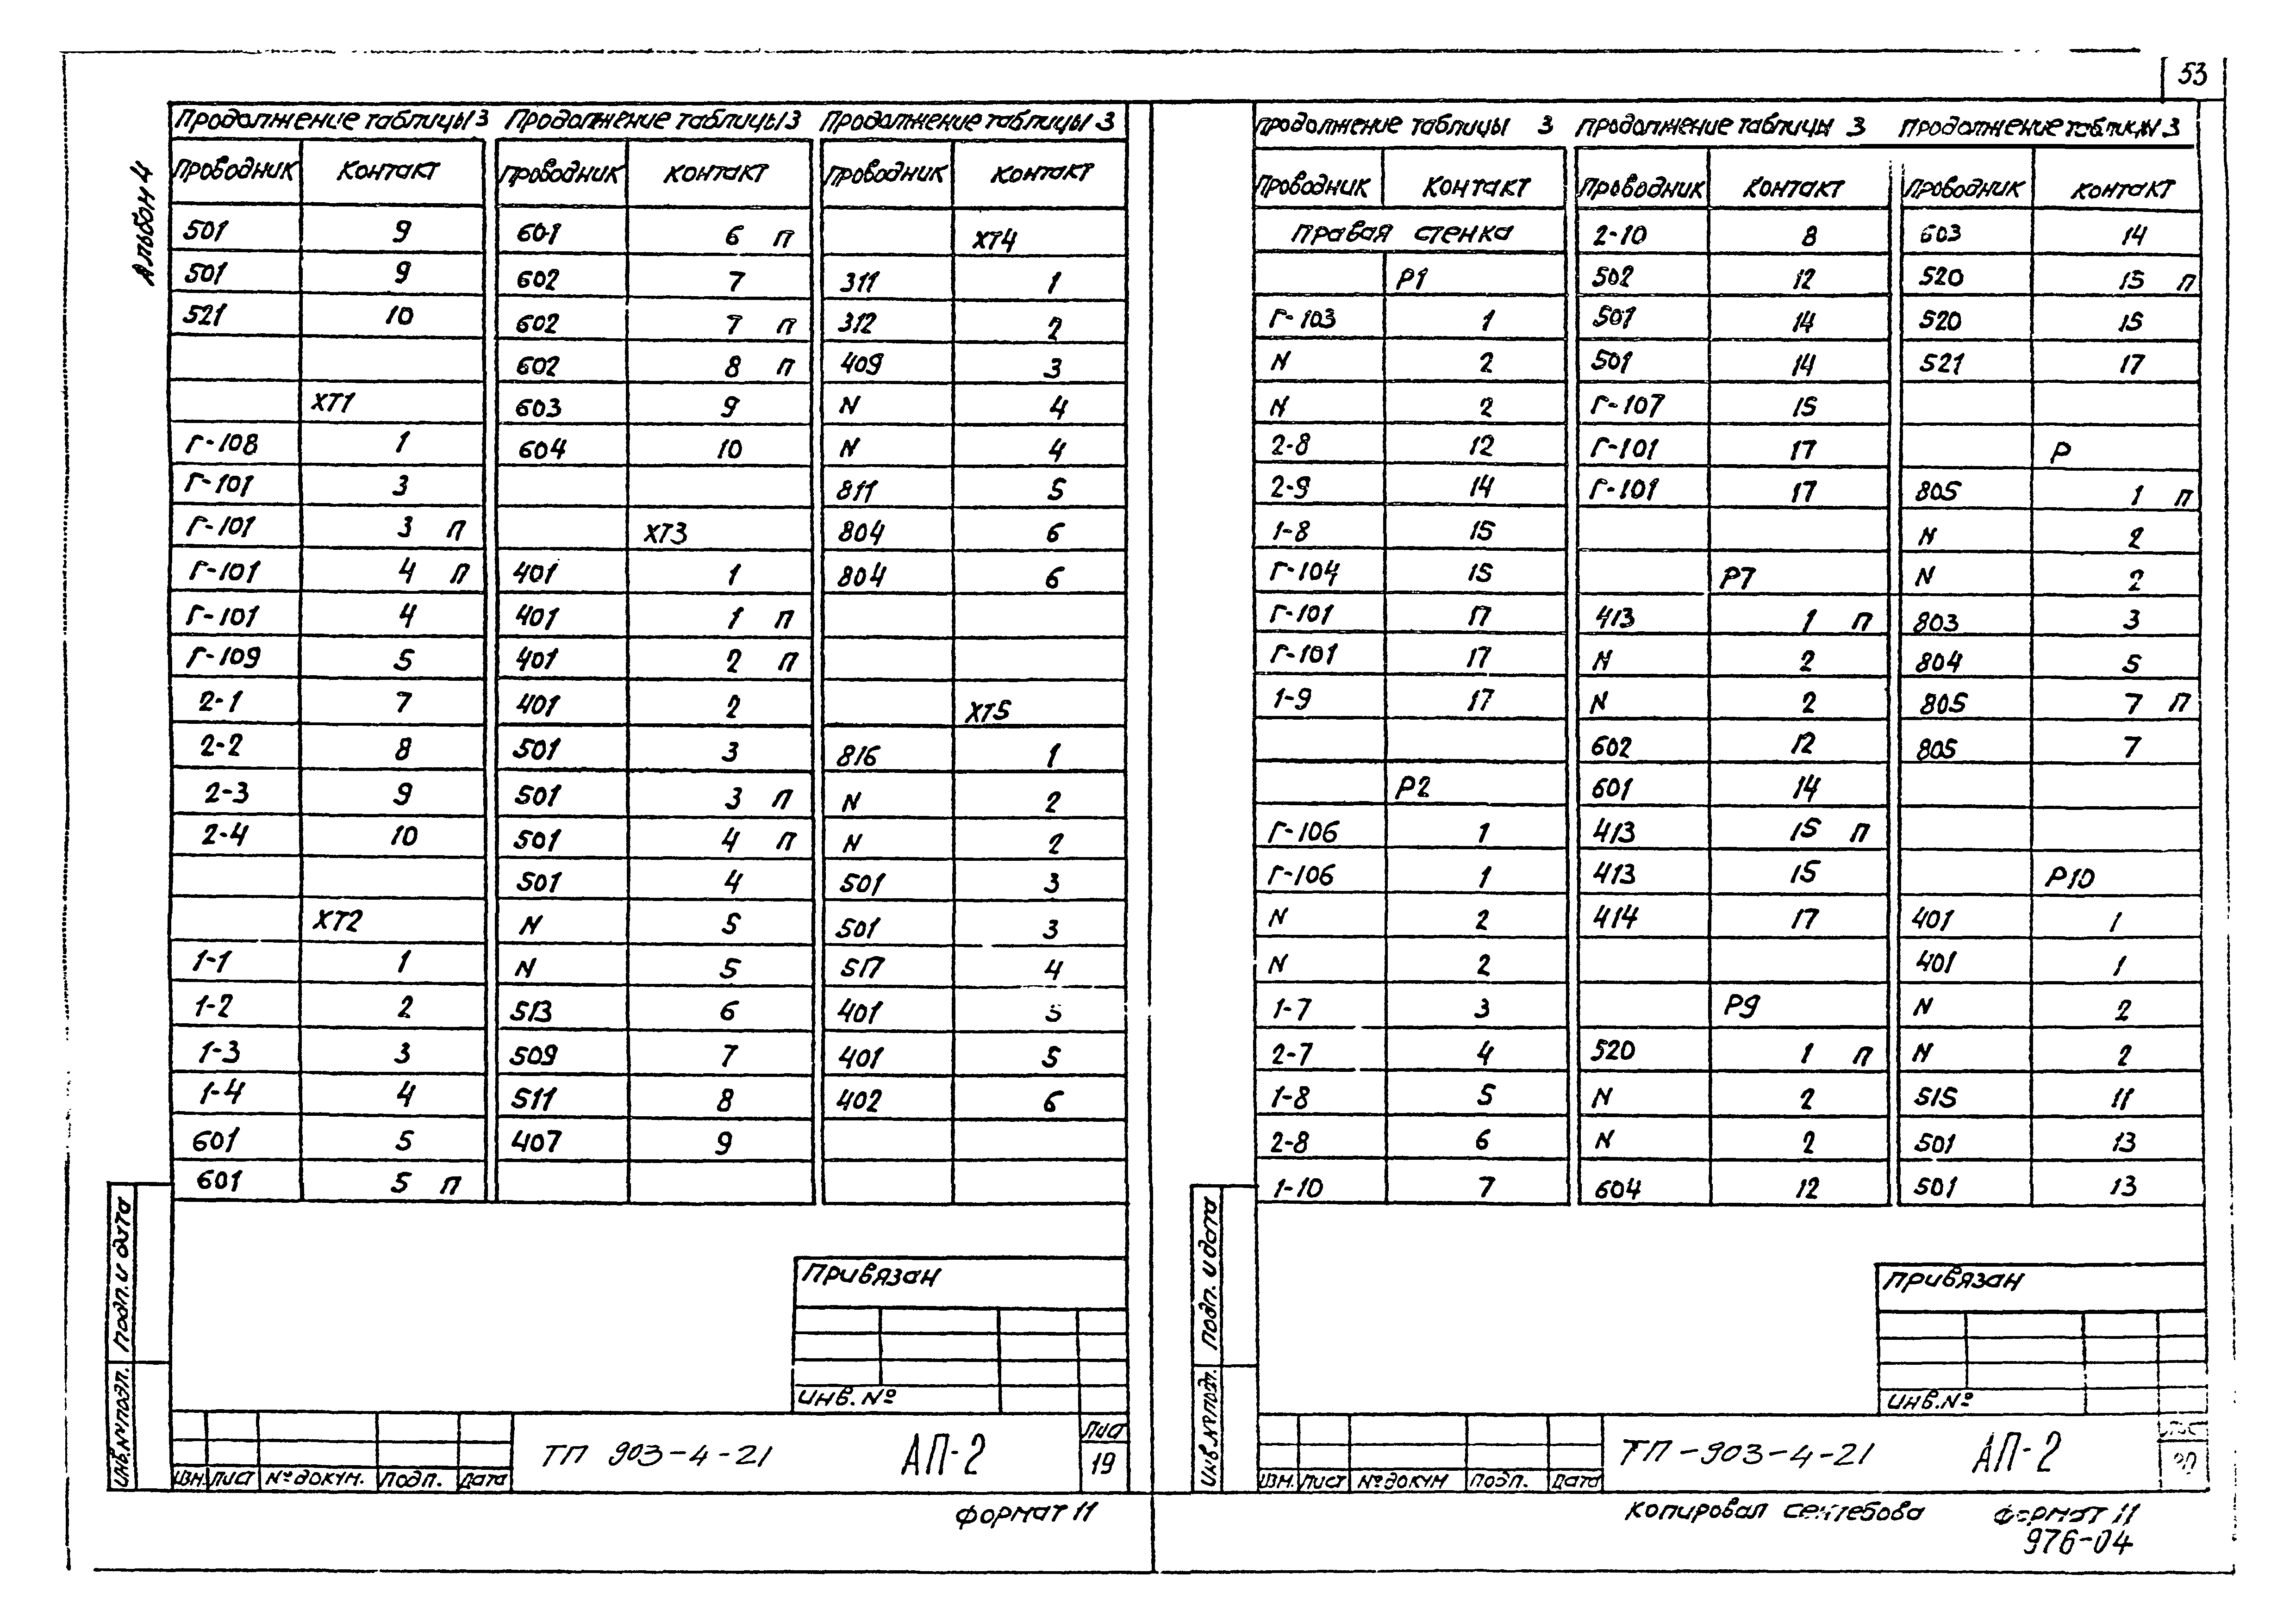 53
Альбом 4
Продолжение таблицы 3
Проводник Контакт
501 9
501 9
521 10
ХТ1
Г-108 1
Г-101 3
Г-101 3 П
Г-101 4 П
Г-101 4
Г-109 5
2-1 7
2-2 8
2-3 9
2-4 10
ХТ2
1-1 1
1-2 2
1-3 3
1-4 4
601 5
601 5 П
Продолжение таблицы 3
Проводник Контакт
601 6 П
602 7
602 7 П
602 8 П
603 9
604 10
ХТ3
401 1
401 1 П
401 2 П
401 2
501 3
501 3 П
501 4 П
501 4
N 5
N 5
513 6
509 7
511 8
407 9
Продолжение таблицы 3
Проводник Контакт
ХТ4
311 1
312 2
409 3
N 4
N 4
811 5
804 6
804 6
ХТ5
816 1
N 2
N 2
501 3
501 3
517 4
401 5
401 5
402 6
Привязан
Инв. №
Инв. № подл. Подп. и дата
Изм. Лист № докум. Подп. Дата
ТП 903-4-21
АП-2
Лист
19
Формат 11
Продолжение таблицы 3
Проводник Контакт
Правая стенка
Р1
Г-103 1
N 2
N 2
2-8 12
2-9 14
1-8 15
Г-104 15
Г-101 17
Г-101 17
1-9 17
Р2
Г-106 1
Г-106 1
N 2
N 2
1-7 3
2-7 4
1-8 5
2-8 6
1-10 7
Продолжение таблицы 3
Проводник Контакт
2-10 8
502 12
501 14
501 14
Г-107 15
Г-101 17
Г-101 17
Р7
413 1 П
N 2
N 2
602 12
601 14
413 15 П
413 15
414 17
Р9
520 1 П
N 2
N 2
604 12
Продолжение таблицы 3
Проводник Контакт
603 14
520 15 П
520 15
521 17
Р
805 1 П
N 2
N 2
803 3
804 5
805 7 П
805 7
Р10
401 1
401 1
N 2
N 2
515 11
501 13
501 13
Привязан
Инв. №
Инв. № подл. Подп. и дата
Изм. Лист № докум Подп. Дата
ТП-903-4-21
АП-2
Копировал
Формат 11
976-04